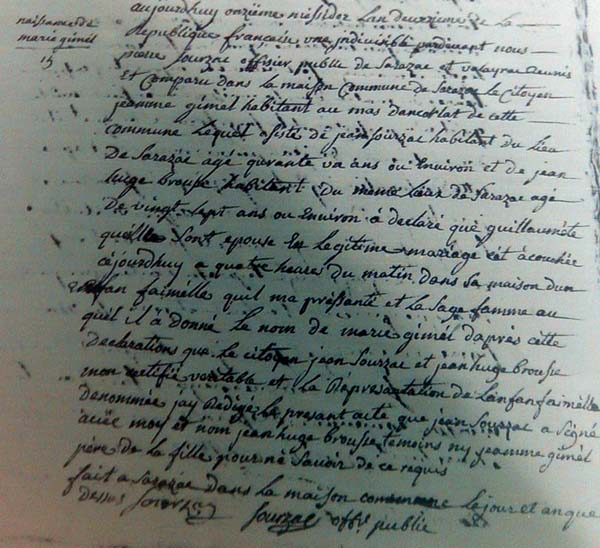 naissance de
marie gimél
15
aujourdhuy onziéme méssidor Lan deuxieme de la
Republique francaise vne jndivisible pardevant nous
Sourzac offisier public de Sarazac et valayrac reunis
Et Comparu dans la maison Commune de Sarazac le Citoyen
jeamme gimél habitant au mas dancolat de cette
commune Lequel asisté de jean sourzac habitant du Lieu
De Sarazac agé quarante va ans ou Environ et de jean
huge brouse habitant Du meme Lieu de Sarazac agé
De vingt Sept ans ou Environ à déclaré que guillauméte
Sont epouse En Legitime mariage éét àcouchée
céjourdhuy a quatre heures du matin dans sa maison dun
Enfan faimélle quil ma présanté et La Sage famme au
quél il à donné Le nom de marie gimél daprés cette
Déclarations que Le citoyen jean Sourzac et jean huge brouse
mon certifié veritable et la Représantation de Lanfan faimélle
denommée jay Redigé Le présant acte que jean Sourzac a Signé
avéc moy et nom jean huge brouse temoins ny jeamme gimél
pére de la fille pour né Savoir de ce réquis
fait a Sarazac dans la maison commune Lejour et an que
dessus Sourzac Sourzac offr. public